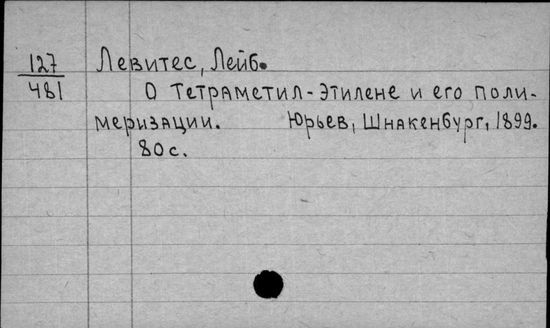 127 Левитес, Лейб.
481 О тетраметил-этилене и его поли-
меризации. Юрьев, Шнакенбург, 1899.
80 с.